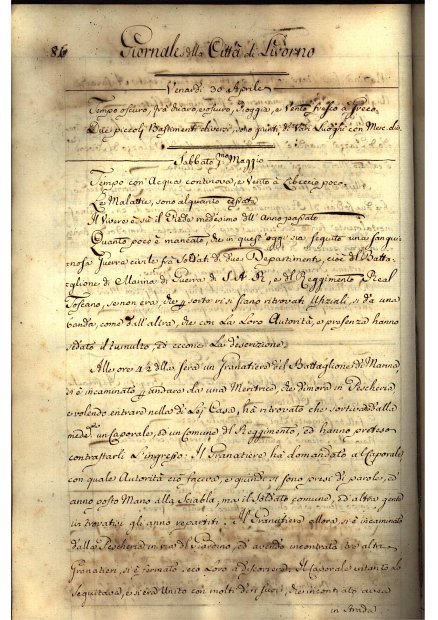 86 Giornale della Città di Livorno
Venardi 30 Aprile
Tempo oscuro, frà chiaro, e oscuro, Pioggia, e Vento fresco à Greco.
Due piccoli Bastimenti diversi, sono giunti, di Vari Luoghi con Merc.
Sabbato p.mo Maggio
Tempo con Acqua continova, e Vento à Libeccio poco.
Le Malattie, sono alquanto
Il Vivere è sù il Piede medesimo dell'Anno passato
Quanto poco è mancato, che in quest'oggi sia seguito una sangui=
nosa Guerra civile frà Soldati di due Dipartimenti, cioè del Batta=
glione di Marina di Guerra di S.A.R., e del Reggimento Real
Toscano, se non era, che p sorte vi si siano ritrovati Ufiziali, sì da una
banda, come dall'altra, che con La Loro Autorità, e presenza hanno
sedato il tumulto, ed eccone La descrizione.
Alle ore 4½ della sera un Granatiere del Battaglione di Marina
si è incaminato p andare da una Meretrice, che dimora in Pescheria
e volendo entrare nella di Lei Casa, ha ritrovato che sortiva dalla
mede.ma un Caporale, ed un Comune del Reggimento, ed hanno preteso
contrastarli L'ingresso. Il Granatiere hà domandato al Caporale
con quale Autorità ciò faceva, e quindi si sono presi di parole, ed
anno posto Mano alla Sciabla, ma il Soldato comune, ed altra gente
ivi trovatasi gli anno repartiti. Il Granatiere allora, si è incaminato
dalla Pescheria in via del Giardino, ed avendo incontrato tre altri
Granatieri, si è fermato seco Loro à discorrere. Il Caporale intanto Lo
seguitava, e si era Unito con molti de' suoi, che incontrati aveva
in Strada.